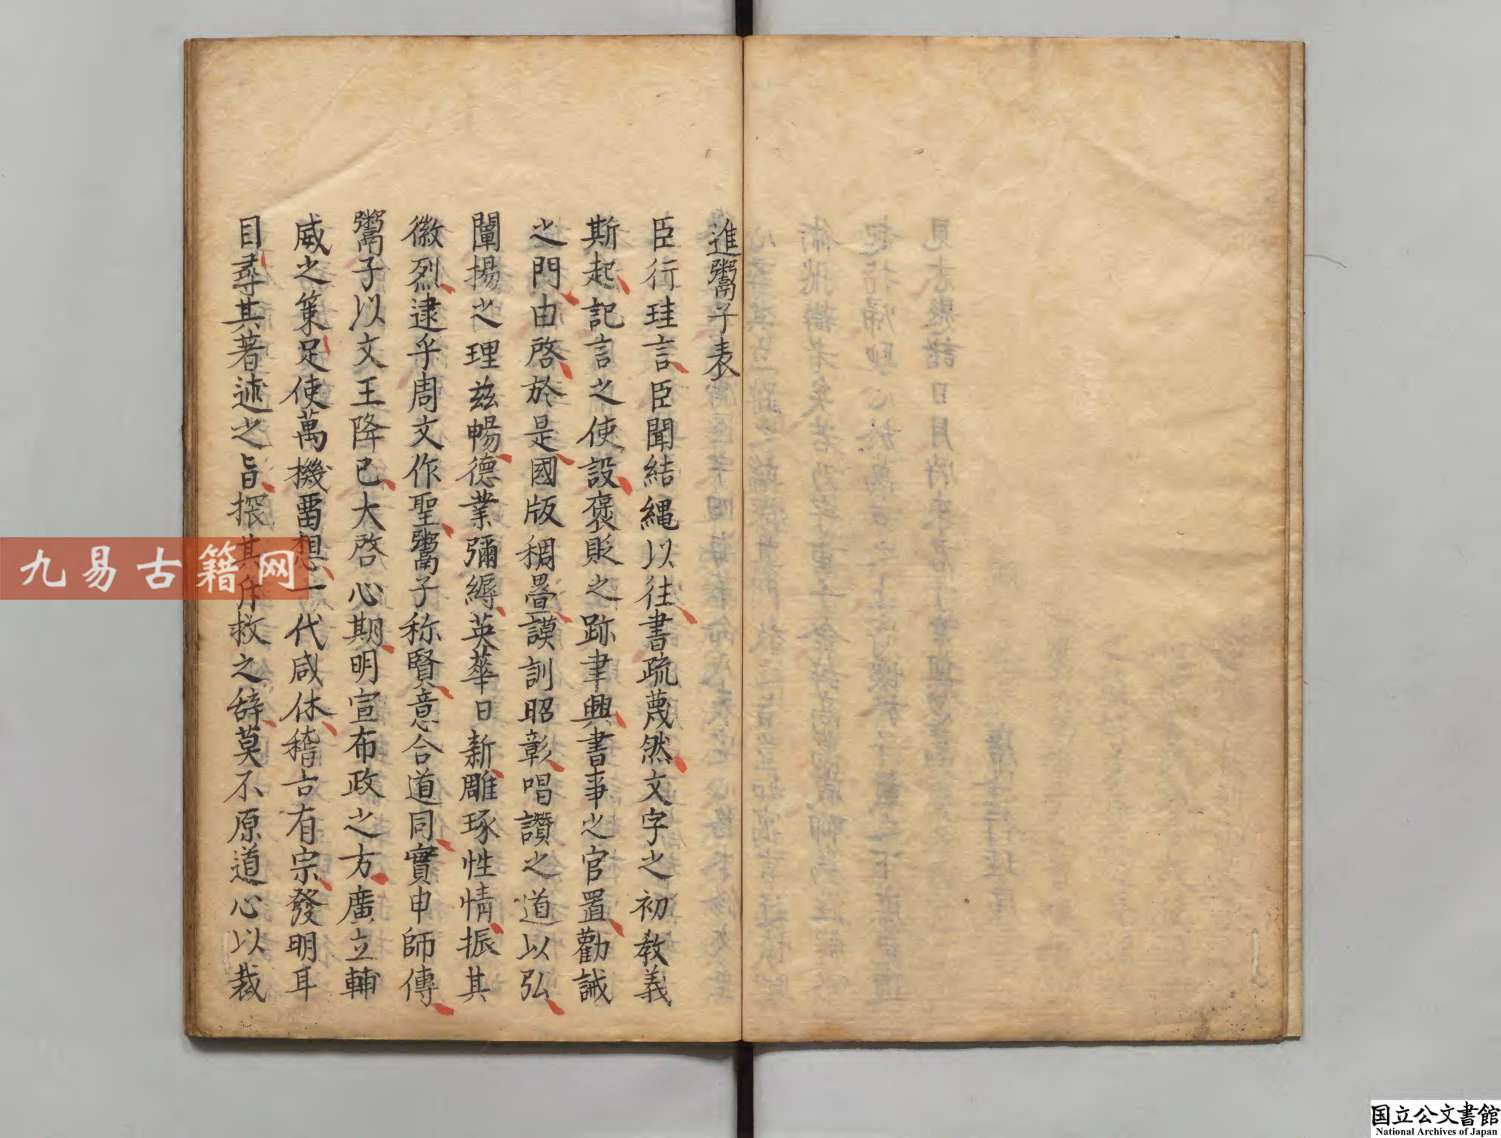 進鬻子表
臣行珪言臣聞結繩以往書疏蔑然文字之初教義
斯起記言之使設褒貶之跡聿興書事之官置勸誡
之門由啓於是國版稠疊謨訓昭彰唱讚之道以弘
闡揚之理茲暢德業彌縟英華日新雕琢性情振其
徽烈逮乎周文作聖鬻子称賢意合道同實申師傳
鬻子以文王降已大啓心期明宣布政之方廣立輔
威之策足使萬機留想一代咸休稽古有宗發明耳
目尋其著述之旨探其斥救之辞莫不原道心以裁
九易古籍网
国立公文書館
National Archives of Japan